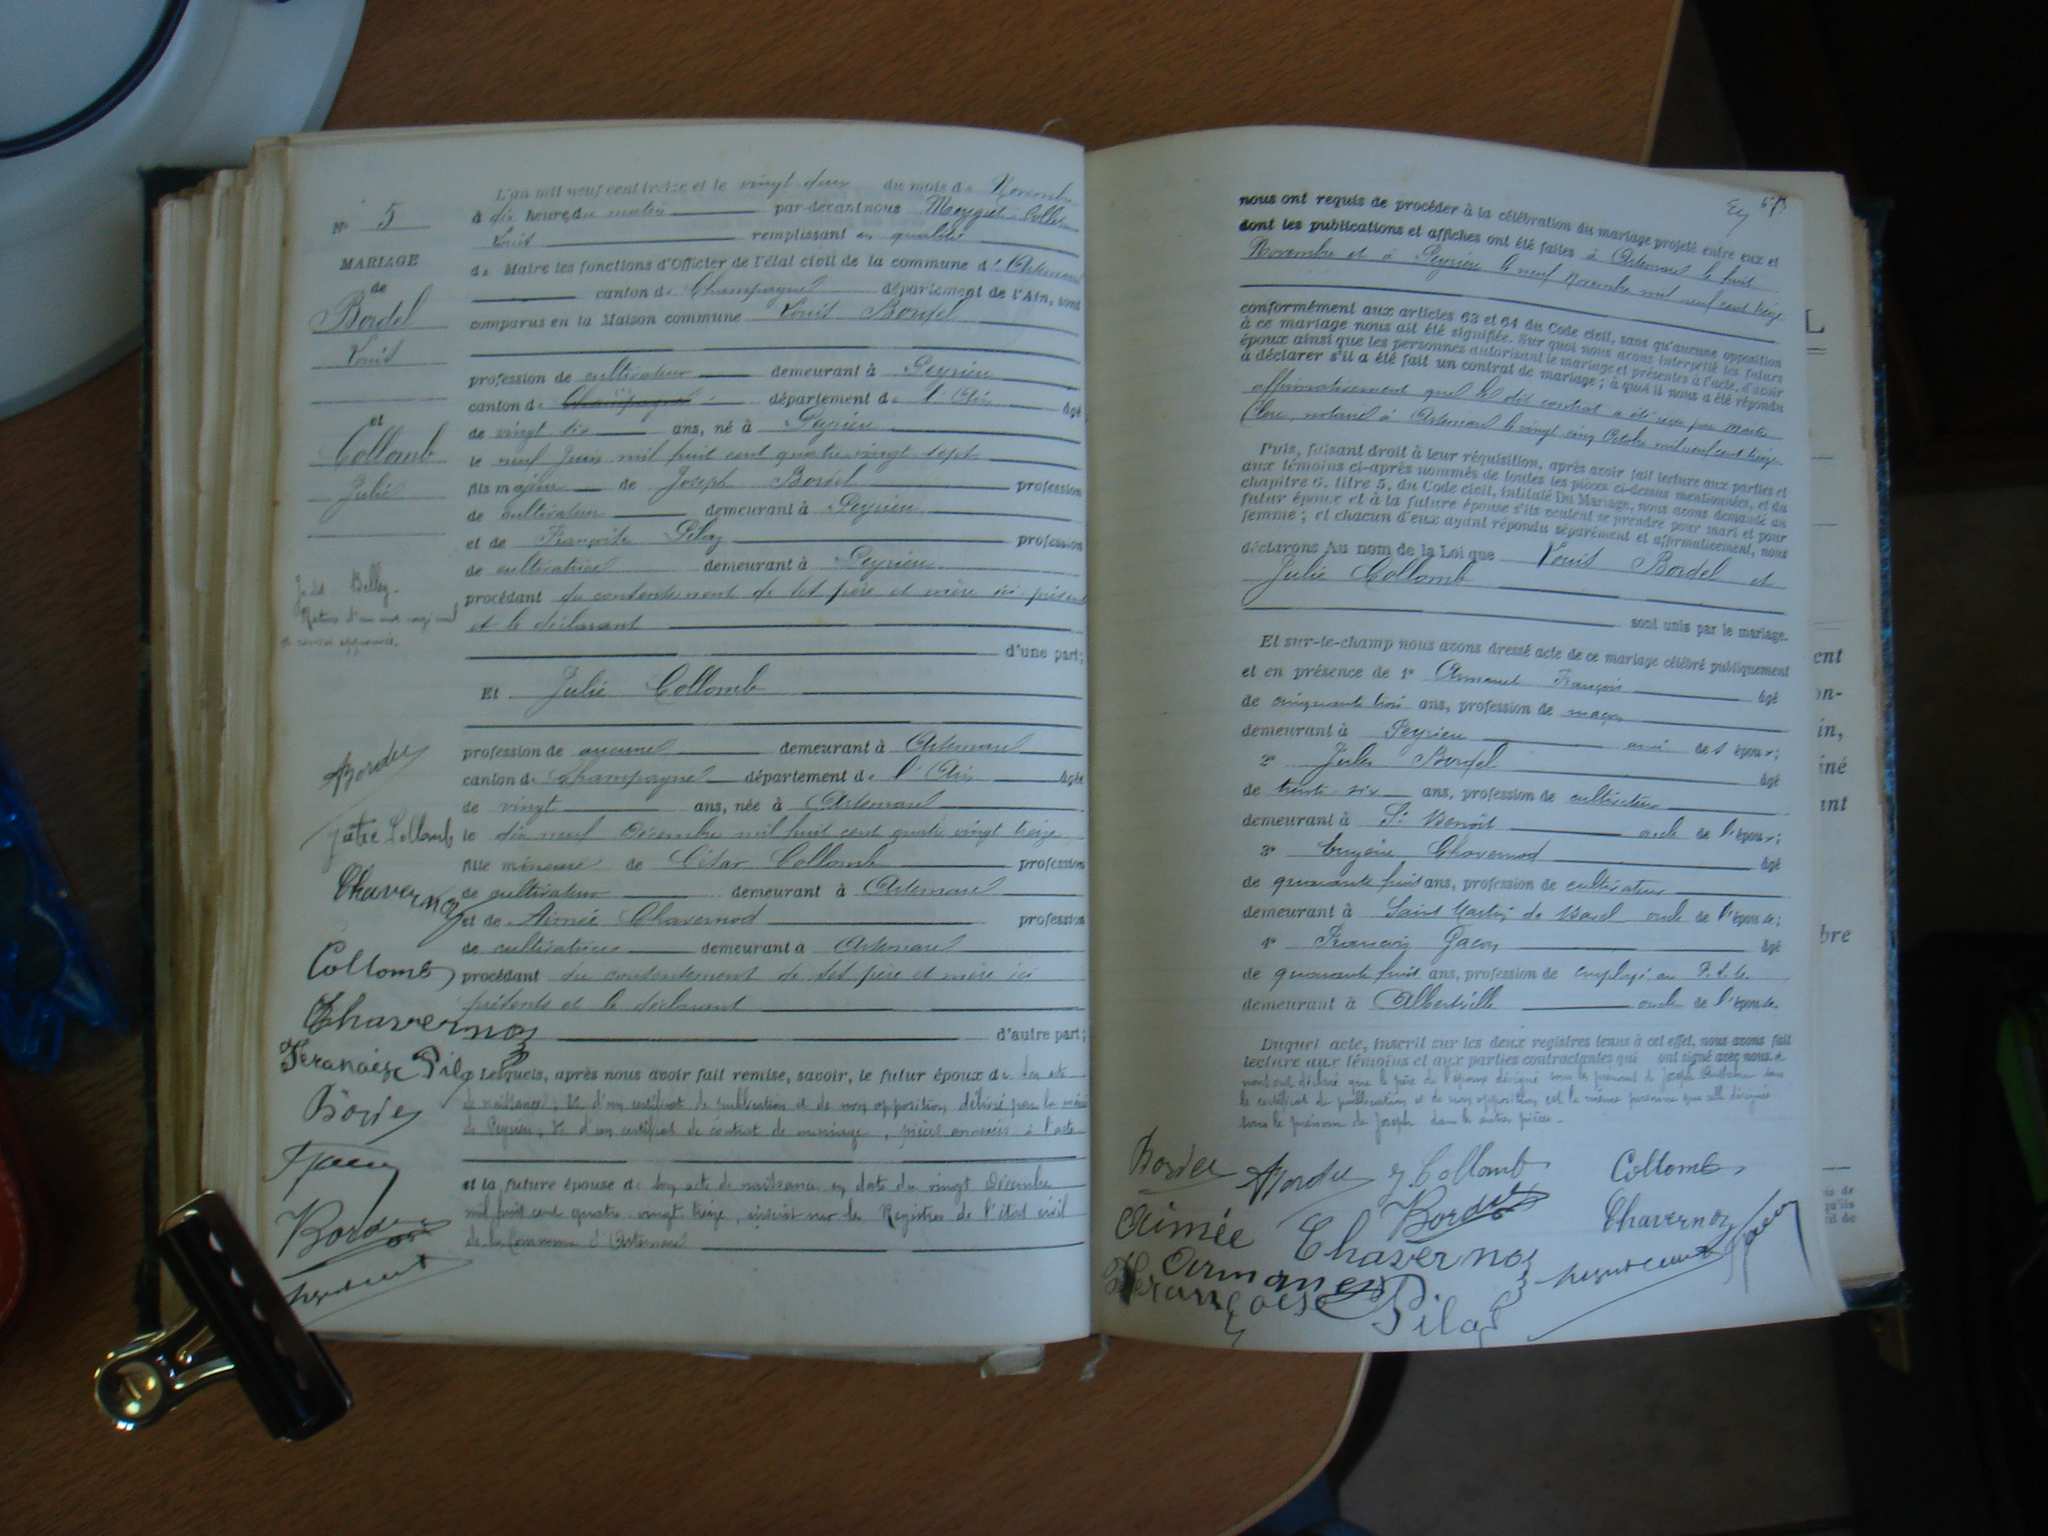 N° 5
MARIAGE
de
Bordel
Louis
et
Collomb
Julie
L'an mil neuf cent treize et le vingt deux du mois de Novembre
à dix heures du matin par-devant nous Collet
Louis remplissant en qualité
de Maire les fonctions d'Officier de l'état civil de la commune d'Artemare
canton de Champagne département de l'Ain, sont
comparus en la Maison commune Louis Bordel
profession de cultivateur demeurant à Peyrieu
canton de Champagne département de l'Ain âgé
de vingt six ans, né à Peyrieu
le neuf Juin mil huit cent quatre vingt sept
fils majeur de Joseph Bordel profession
de cultivateur demeurant à Peyrieu
et de Françoise Pilaz profession
de cultivatrice demeurant à Peyrieu
procédant du contentement de ses père et mère ici présents
et le déclarant
d'une part;
Et Julie Collomb
profession de aucune demeurant à Artemare
canton de Champagne département de l'Ain âgée
de vingt ans, née à Artemare
le dix neuf Décembre mil huit cent quatre vingt treize
fille mineure de César Collomb profession
de cultivateur demeurant à Artemare
et de Aimée Chavernod profession
de cultivatrice demeurant à Artemare
procédant du contentement de ses père et mère ici
présents et le déclarant
d'autre part;
Lesquels, après nous avoir fait remise, savoir, le futur époux de son acte
de naissance; 2° d'un certificat de publication et de non opposition délivré par la mairie
de Peyrieu, 3° d'un certificat de contrat de mariage, pièces annexées à l'acte
et la future épouse de son acte de naissance en date du vingt Décembre
mil huit cent quatre vingt treize, inscrit sur les Registres de l'état civil
de la Commune d'Artemare
Bordel
Julie Collomb
Chavernoz
Collomb
Chavernoz
Françoise Pilaz
Bordel
Gacon
Bordel
nous ont requis de procéder à la célébration du mariage projeté entre eux et
dont les publications et affiches ont été faites à Artemare le huit
Novembre et à Peyrieu le neuf Novembre mil neuf cent treize
conformément aux articles 63 et 64 du Code civil, sans qu'aucune opposition
à ce mariage nous ait été signifiée. Sur quoi nous avons interpellé les futurs
époux ainsi que les personnes autorisant le mariage et présentes à l'acte, d'avoir
à déclarer s'il a été fait un contrat de mariage; à quoi il nous a été répondu
affirmativement que le dit contrat a été reçu par maître
notaire à Artemare le vingt cinq Octobre mil neuf cent treize
Puis, faisant droit à leur réquisition, après avoir fait lecture aux parties et
aux témoins ci-après nommés de toutes les pièces ci-dessus mentionnées, et du
chapitre 6, titre 5, du Code civil, intitulé Du Mariage, nous avons demandé au
futur époux et à la future épouse s'ils veulent se prendre pour mari et pour
femme; et chacun d'eux ayant répondu séparément et affirmativement, nous
déclarons Au nom de la Loi que Louis Bordel et
Julie Collomb
sont unis par le mariage.
Et sur-le-champ nous avons dressé acte de ce mariage célébré publiquement
et en présence de 1° Armanet François âgé
de cinquante trois ans, profession de maçon
demeurant à Peyrieu ami de l'époux;
2° Jules Bordel âgé
de trente six ans, profession de cultivateur
demeurant à St Benoît oncle de l'époux;
3° Eugène Chavernod âgé
de quarante huit ans, profession de cultivateur
demeurant à Saint Martin de Bavel oncle de l'épouse;
4° François Gacon âgé
de quarante huit ans, profession de employé au P.L.M.
demeurant à Albertville oncle de l'épouse.
Duquel acte, inscrit sur les deux registres tenus à cet effet, nous avons fait
lecture aux témoins et aux parties contractantes qui ont signé avec nous. et
nous ont déclaré que le père de l'époux désigné sous les prénoms de Joseph Anthelme dans
le certificat de publication et de non opposition est la même personne que celle désignée
sous le prénom de Joseph dans les autres pièces.
Bordel Bordel J Collomb Collomb
Aimée Chavernoz Bordel Chavernoz Gacon
Armanet
Françoise Pilaz